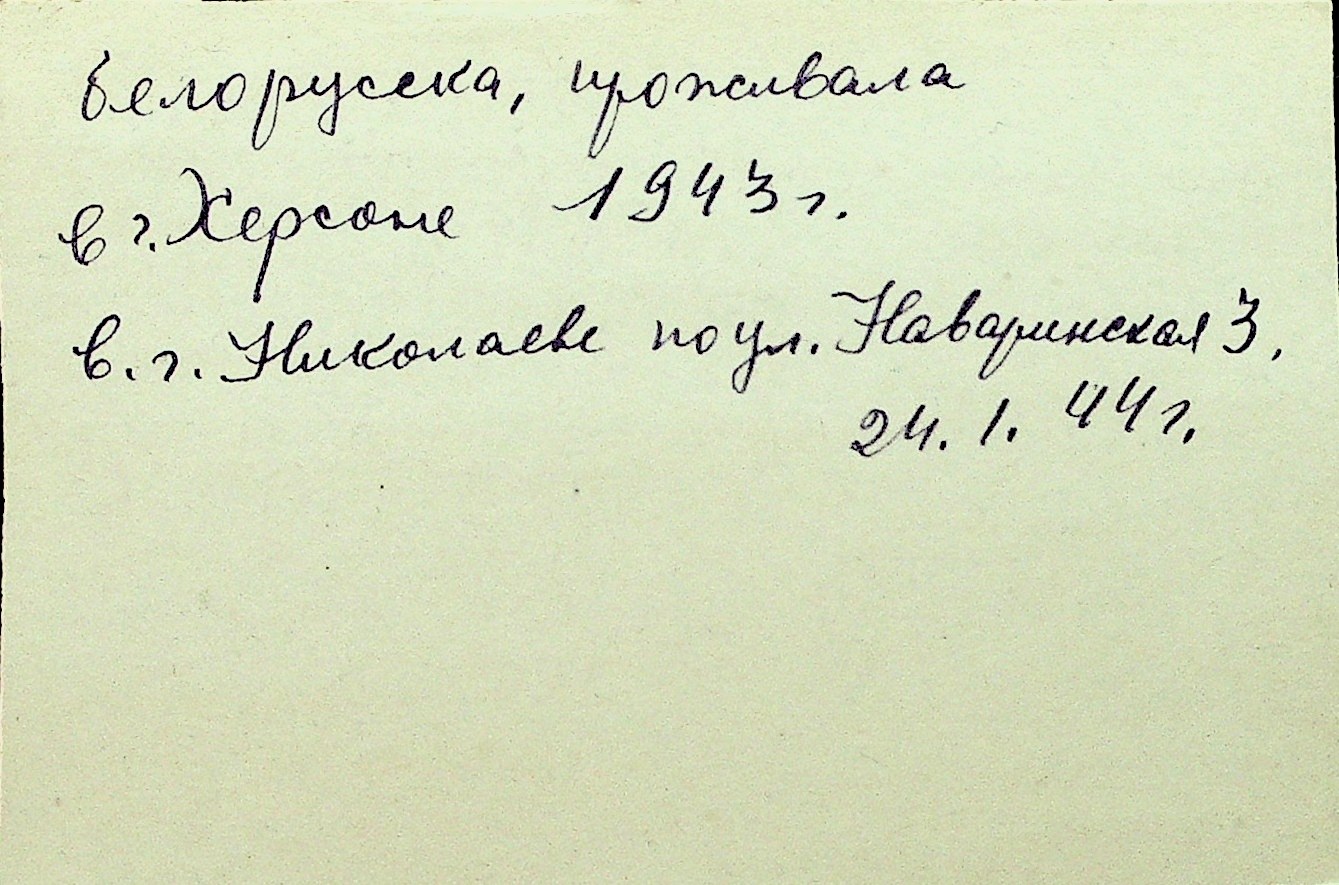 Белорусска, проживала
в г. Херсоне 1943 г.
в. г. Николаеве по ул. Наваринская 3,
24. 1. 44 г.